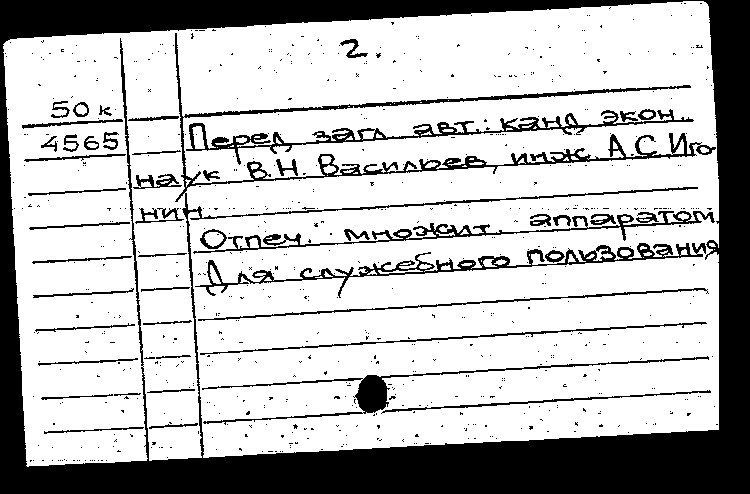 2.
50 к
4565
Перед загл авт.: канд экон.
наук В.Н. Васильев, инж. А.С. Иго-
нин.
Отпеч. множит. аппаратом.
Для служебного пользования